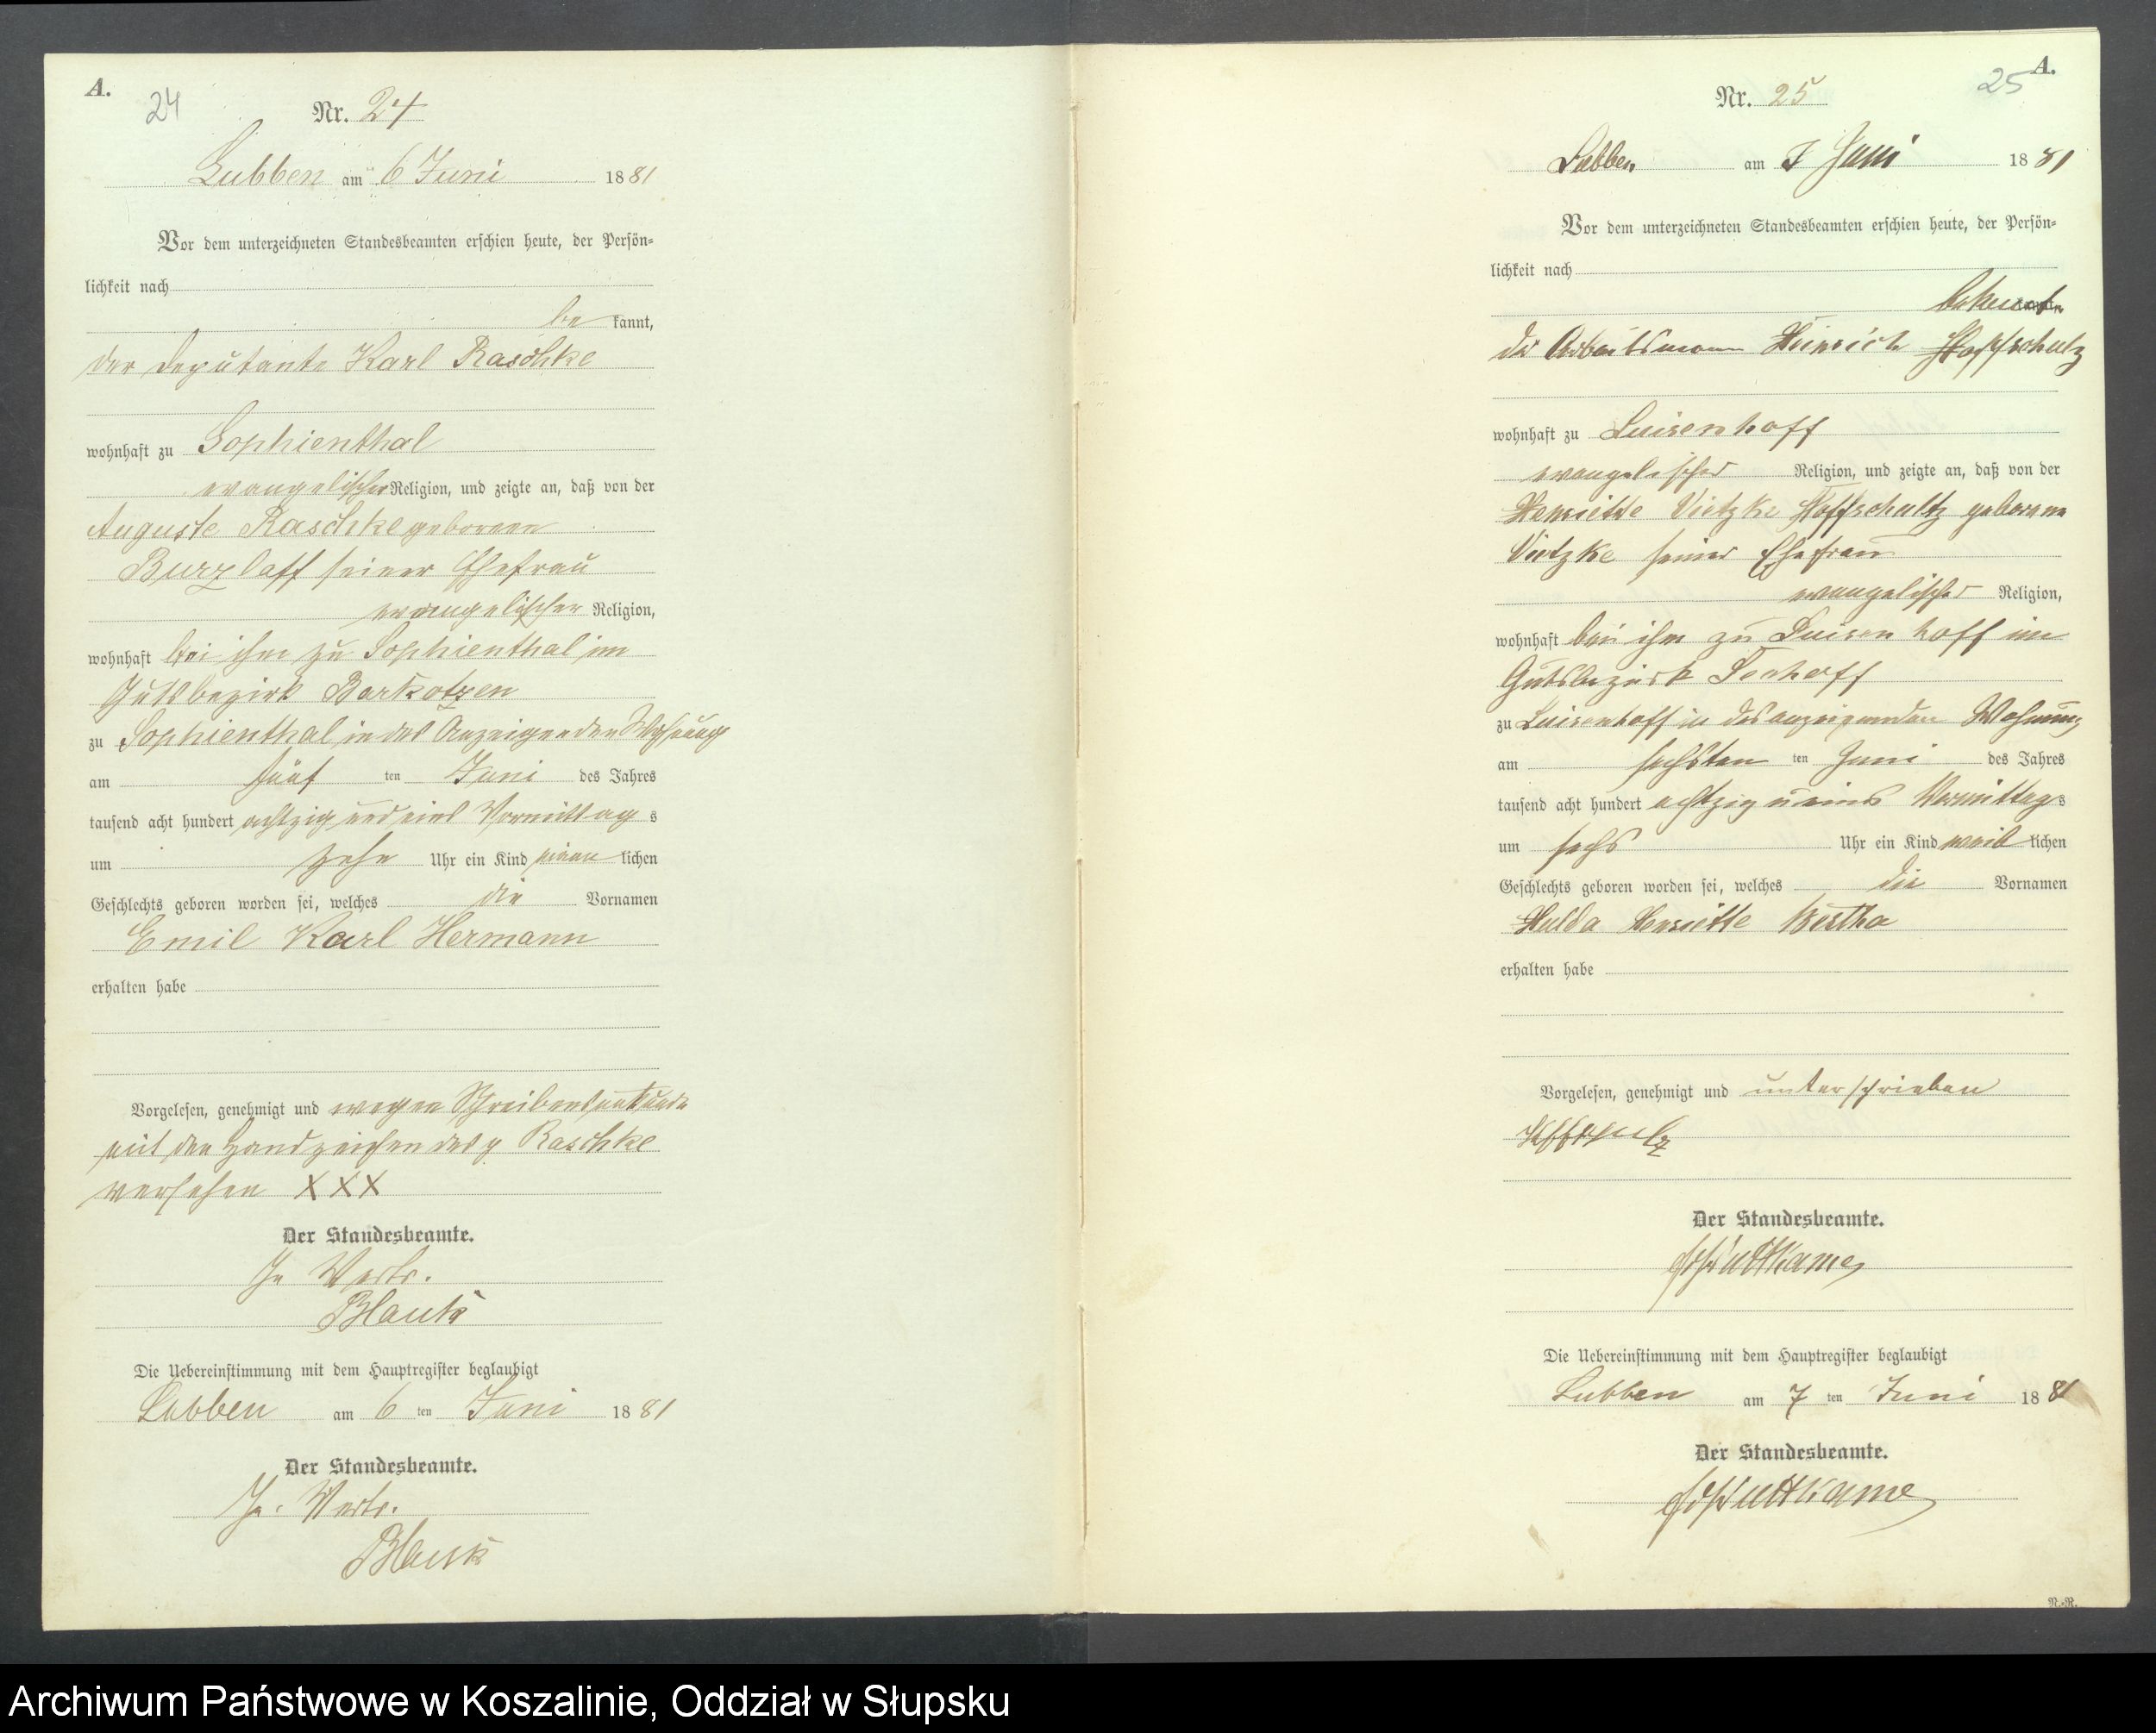 A.
24
Nr. 24
Lubben am 6 Juni 1881
Vor dem unterzeichneten Standesbeamten erschien heute, der Persön=
lichkeit nach
be kannt,
der Deputante Karl Raschke
wohnhaft zu Sophienthal
evangelischer Religion, und zeigte an, daß von der
Auguste Raschke geboren
Burzlaff seiner Ehefrau
evangelischer Religion,
wohnhaft bei ihm zu Sophienthal im
Gutsbezirk Barkotzen
zu Sophienthal in des Anzeigenden Wohnung
am fünf ten Juni des Jahres
tausend acht hundert achtzig und eins Vormittag s
um zehn Uhr ein Kind männ lichen
Geschlechts geboren worden sei, welches die Vornamen
Emil Karl Hermann
erhalten habe
Vorgelesen, genehmigt und wegen Schreibensunkunde
mit den Handzeichen des p. Raschke
versehen XXX
Der Standesbeamte.
In Vertr.
Die Uebereinstimmung mit dem Hauptregister beglaubigt
Lubben am 6 ten Juni 1881
Der Standesbeamte.
In. Vertr.
A.
25
Nr. 25
Lubben am 7 Juni 1881
Vor dem unterzeichneten Standesbeamten erschien heute, der Persön=
lichkeit nach
bekannt,
der Arbeitsmann Heinrich Hoffschulz
wohnhaft zu Luisenhoff
evangelischer Religion, und zeigte an, daß von der
Henriette Vietzke Hoffschultz geborene
Vietzke seiner Ehefrau
evangelischer Religion,
wohnhaft bei ihm zu Luisenhoff im
Gutsbezirk
zu Luisenhoff in des anzeigenden Wohnung
am sechsten ten Juni des Jahres
tausend acht hundert achtzig u eins Vormittags
um sechs Uhr ein Kind weib lichen
Geschlechts geboren worden sei, welches die Vornamen
Hulda Henriette Bertha
erhalten habe
Vorgelesen, genehmigt und unterschrieben
Der Standesbeamte.
Puttkamer
Die Uebereinstimmung mit dem Hauptregister beglaubigt
Lubben am 7 ten Juni 1881
Der Standesbeamte.
Puttkamer
N.-R.
Archiwum Państwowe w Koszalinie, Oddział w Słupsku